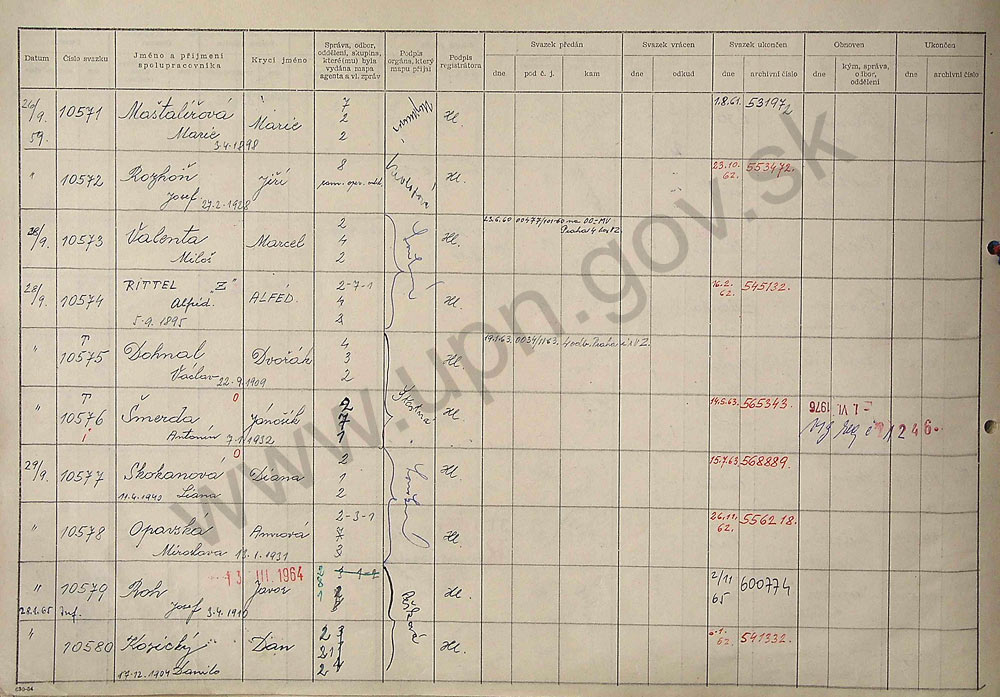 Datum
Číslo svazku
Jméno a příjmení spolupracovníka
Krycí jméno
Správa, odbor, oddělení, skupina, které(mu) byla vydána mapa agenta a vl. zpráv
Podpis orgánu, který mapu přijal
Podpis registrátora
Svazek předán
dne
pod č. j.
kam
Svazek vrácen
dne
odkud
Svazek ukončen
dne
archivní číslo
Obnoven
kým, správa, odbor, oddělení
Ukončen
dne
archivní číslo
26/9. 59. 10571 Maštalířová Marie 3.4.1898 Marie 7 2 2 Hl. 1.8.61. 531972
" 10572 Rozhoň Josef 27.2.1928 Jiří 8 Hl. 23.10.62. 553472.
28/9. 10573 Valenta Miloš Marcel 2 4 2 Hl. 23.6.60 Praha
28/9. 10574 RITTEL "Z" Alfréd. 5.9.1895 ALFÉD. 2-7-1 4 2 Hl. 16.2.62. 545132.
" T 10575 Dohnal Václav 22.9.1909 Dvořák 4 3 2 Hl. 19.1.63. 4 odb. Praha
" T 10576 Šmerda Antonín 1932 Jánošík 2 7 1 Hl. 14.5.63. 565343. - 1. VI. 1976 1246.
29/9. 10577 Skokanová Liana 11.4.1940 Diana 2 1 2 Hl. 15.7.63. 568889.
" 10578 Opavská Miroslava 13.1.1931 Annová 2-3-1 7 3 Hl. 26.11.62. 556218.
13 III. 1964
" 10579 28.1.65 Inf. Roh Josef 3.4.1910 Javor Hl. 2/11 65 600774
" 10580 Kosický Danilo 17.12.1904 Dan 2 3 21 2 Hl. 62. 541332.
www.upn.gov.sk